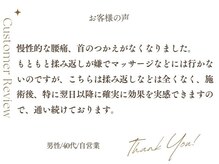 お客様の声
Customer Review
慢性的な腰痛、首のつかえがなくなりました。
もともと揉み返しが嫌でマッサージなどには行かな
いのですが、こちらは揉み返しなどは全くなく、施
術後、特に翌日以降に確実に効果を実感できますの
で、通い続けております。
男性/40代/自営業
Thank You!